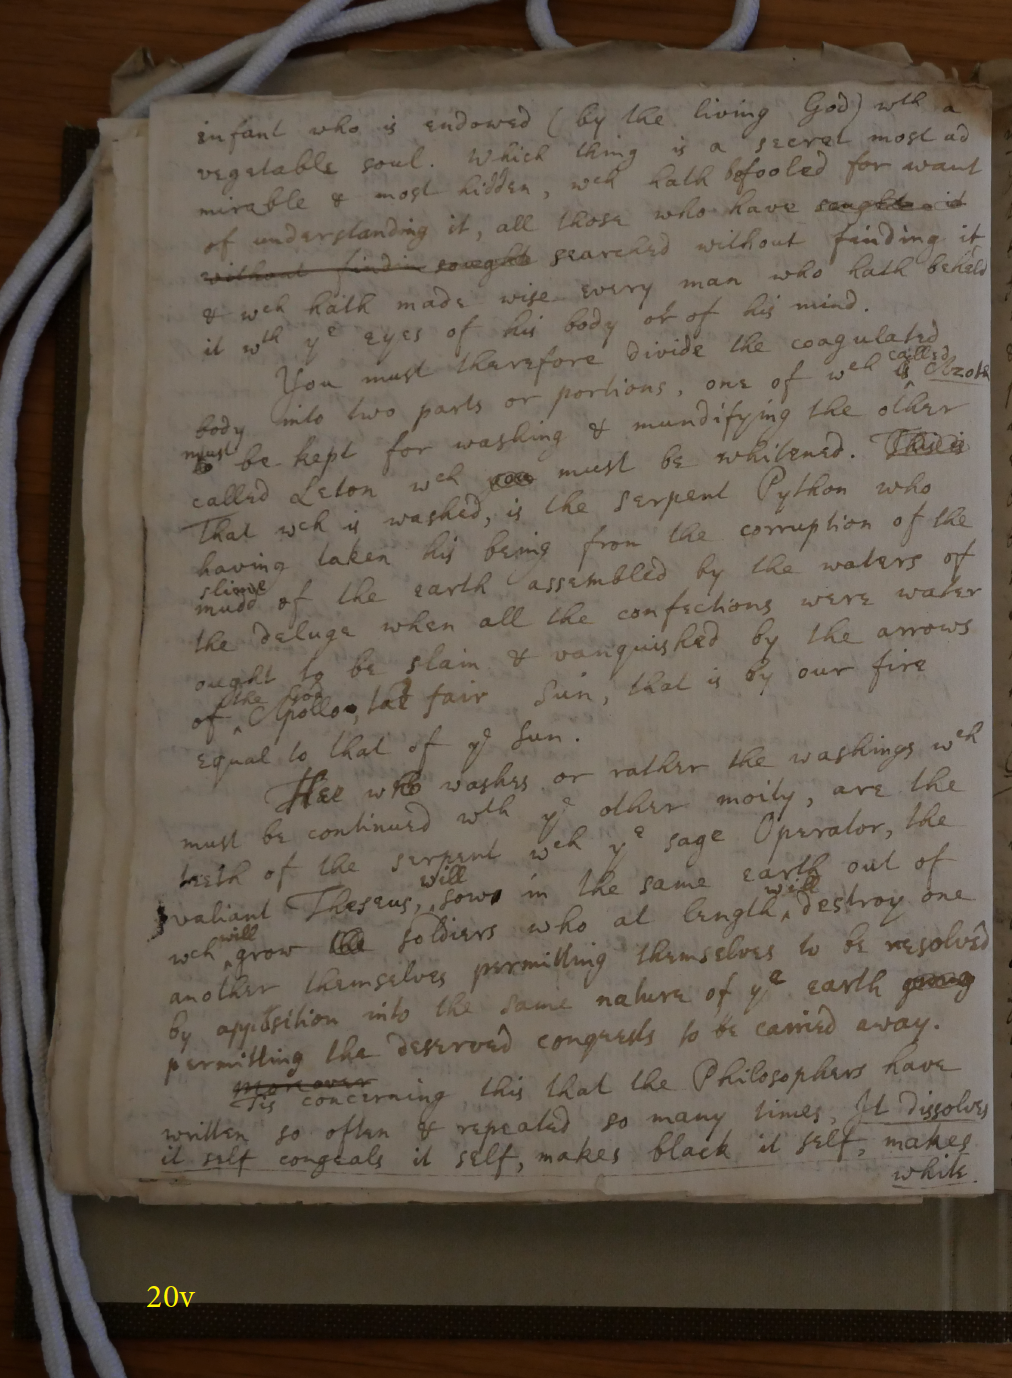 infant who is endowed (by the living God) wth a
vegetable soul. Which thing is a secret most ad
mirable & most hidden, wch hath befooled for want
of understanding it, all those who have sought it
without findin sought searched without finding it
& wch hath made wise every man who hath beheld
it wth ye eyes of his body or of his mind.
You must therefore divide the coagulated
called
body into two parts or portions, one of wch is Azoth
must be kept for washing & mundifying the other
called Leton wch must be whitened. This is
That wch is washed, is the serpent Python who
having taken his being from the corruption of the
slime
mudd of the earth assembled by the waters of
the deluge when all the confections were water
ought to be slain & vanquished by the arrows
the God
of Apollo, the fair Sun, that is by our fire
equal to that of ye Sun.
Hee who washes or rather the washings wch
must be continued wth ye other moity, are the
teeth of the serpent wch ye sage Operator, the
will
valiant Theseus, sow in the same earth out of
will will
wch grow the soldiers who at length destroy one
another themselves permitting themselves to be resolved
by apposition into the same nature of ye earth
permitting the deserved conquests to be carried away.
moreover
Tis concerning this that the Philosophers have
written so often & repeated so many times, It dissolves
it self congeals it self, makes black it self, makes
white.
20v